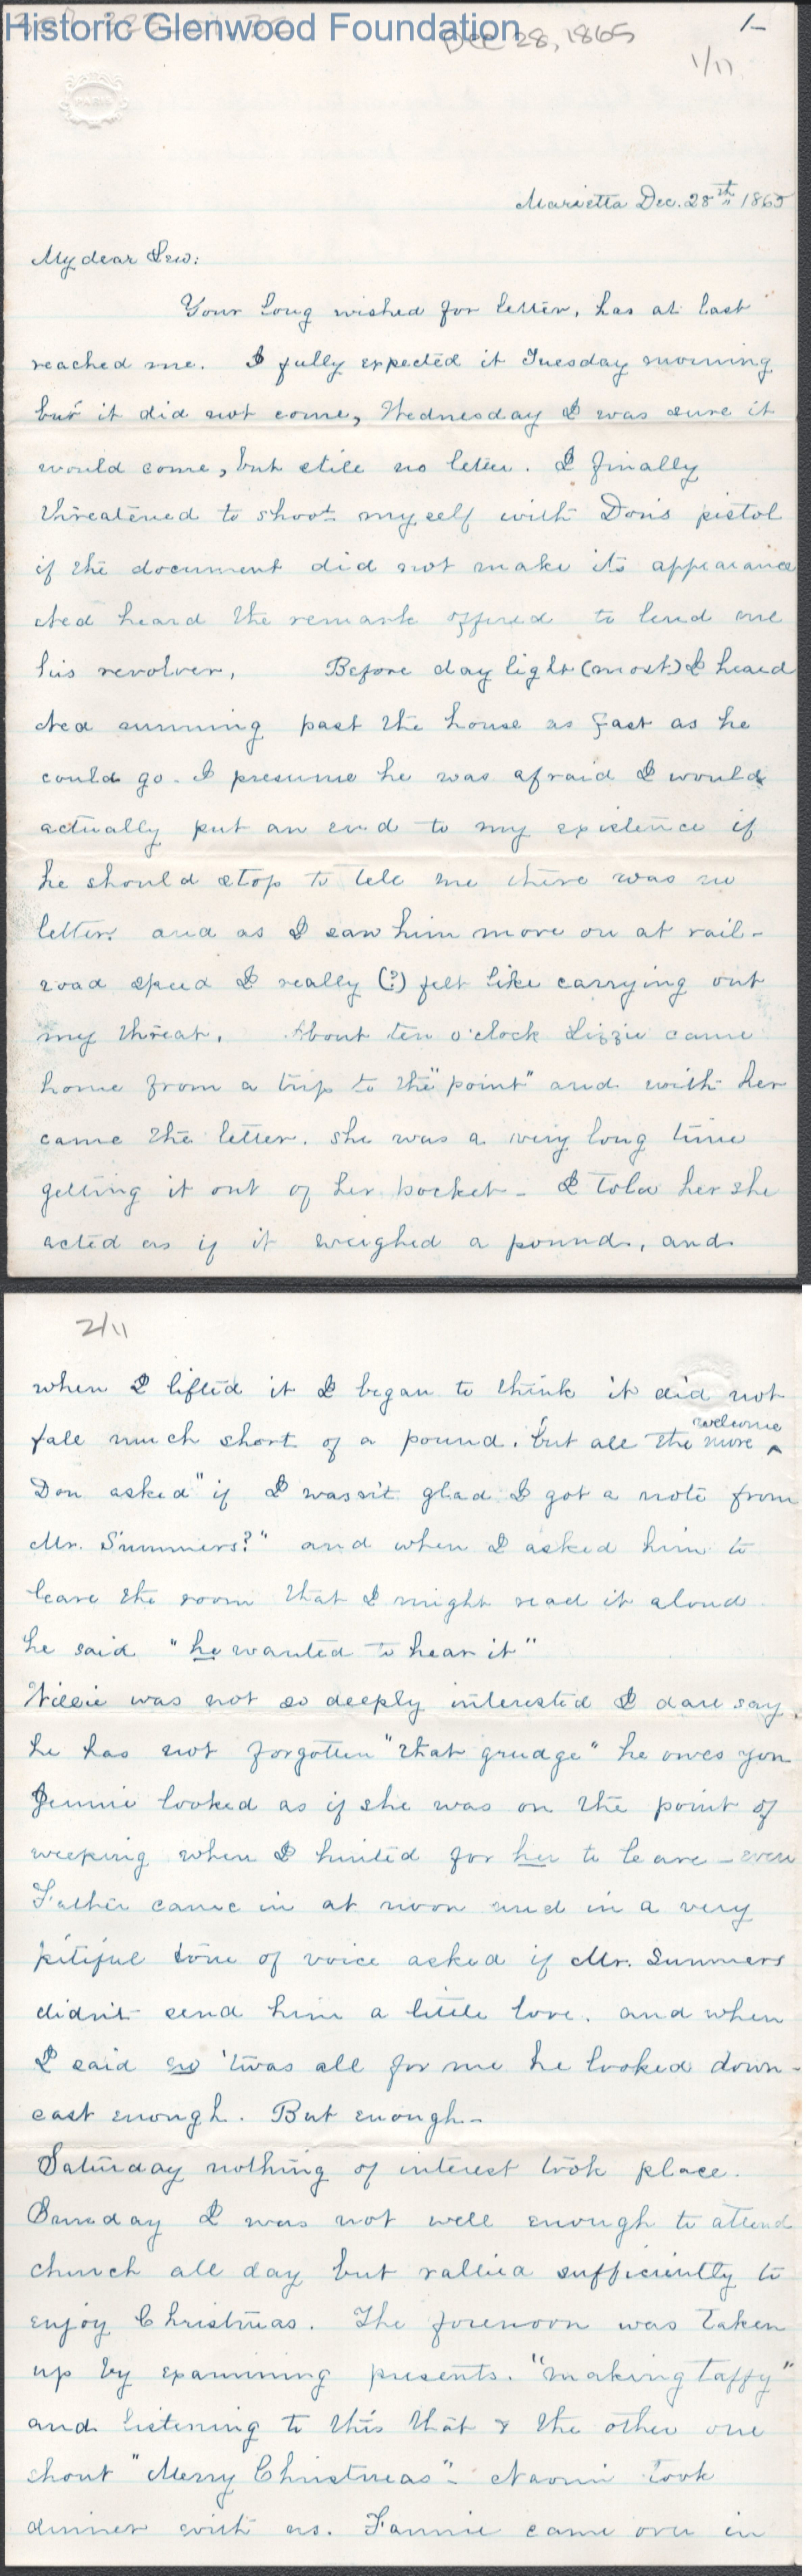 Historic Glenwood Foundation
Dec 28, 1865
1-
1/11
PARIS
Marietta Dec. 28th 1865
My dear Lew:
Your long wished for letter, has at last
reached me. I fully expected it Tuesday morning
but it did not come, Wednesday I was sure it
would come, but still no letter. I finally
threatened to shoot myself with Don's pistol
if the document did not make its appearance
Ned heard the remark offered to lend me
his revolver, Before day light (most) I heard
Ned running past the house as fast as he
could go. I presume he was afraid I would
actually put an end to my existence if
he should stop to tell me there was no
letter. and as I saw him move on at rail-
road speed I really (?) felt like carrying out
my threat. About ten o'clock Lizzie came
home from a trip to the "point" and with her
came the letter. she was a very long time
getting it out of her pocket - I told her she
acted as if it weighed a pound, and
2/11
when I lifted it I began to think it did not
fall much short of a pound. but all the more ^ welcome
Don asked "if I wasn't glad I got a note from
Mr. Summers?" and when I asked him to
leave the room that I might read it aloud
he said "he wanted to hear it"
Willie was not so deeply interested I dare say.
he has not forgotten "that grudge" he owes you
Jennie looked as if she was on the point of
weeping when I hinted for her to leave - even
Father came in at noon and in a very
pitiful tone of voice asked if Mr. Summers
didn't send him a little love. and when
I said no 'twas all for me he looked down-
cast enough. But enough -
Saturday nothing of interest took place.
Sunday I was not well enough to attend
church all day but rallied sufficiently to
enjoy Christmas. The forenoon was taken
up by examining presents. "making taffy"
and listening to this that & the other one
shout "Merry Christmas" - Naomi took
dinner with us. Fannie came over in